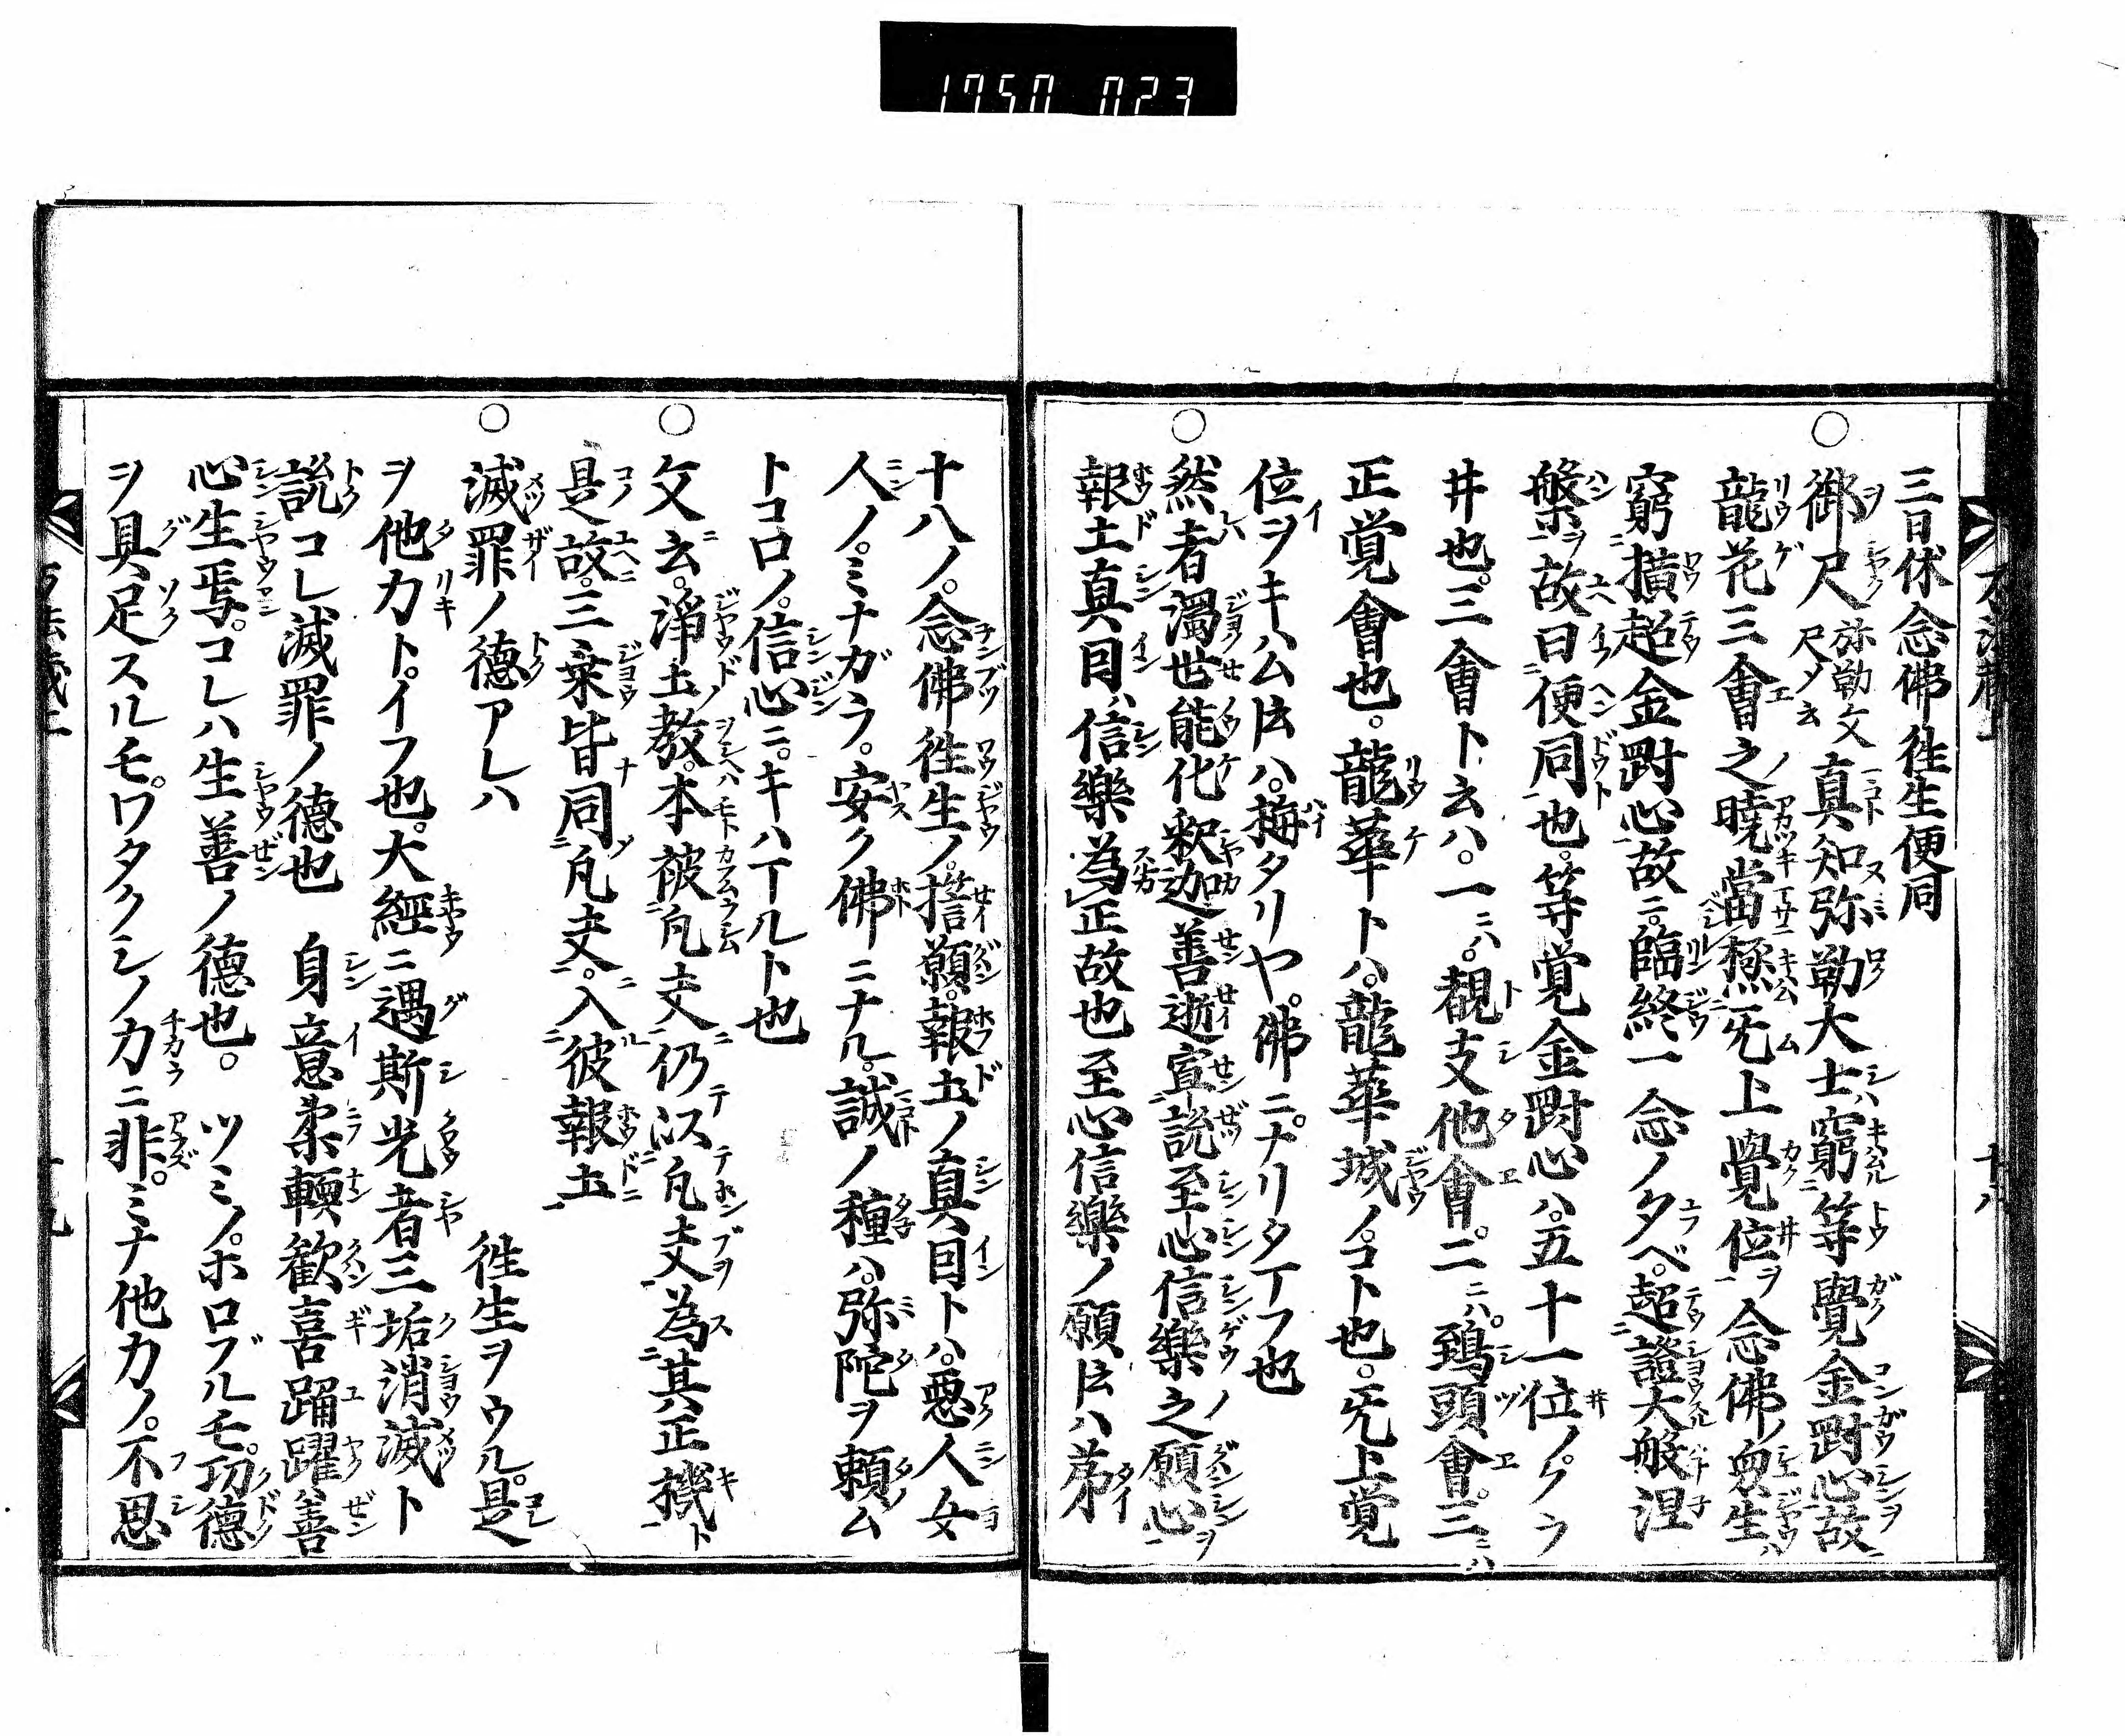 1750 023
三曰休念佛徃生便同
御尺 弥勒文尺メ云 真知弥勒大士窮等覺金剛心故
龍花三會之曉當極无上覺位ヲ念佛ノ衆生ハ
窮横超金剛心故ニ。臨終一念ノ夕ベ。超證大般涅
槃ヲ故曰便同也。等覚金剛心ハ。五十一位ノクラ
井也。三會ト云ハ。一ニハ。覩支他會。二ニハ。鵄頭會。三ニハ
正覚會也。龍華トハ。龍華城ノコト也。无上覚
位ヲキハム𪜈ハ。梅タリヤ。佛ニ。ナリタ丁フ也
然者濁世能化釈迦善逝宣説至心信樂之願心ヲ
報土真因ハ信樂為正故也至心信樂ノ願𪜈ハ第
十八ノ。念佛徃生ノ。擔願。報土ノ真因トハ。悪人女
人ノ。ミナガラ。安ク佛ニナル。誠ノ種ハ。弥陀ヲ頼ム
トコロノ。信心ニ。キハ丁ルト也
文云。淨土教。本被凡夫仍以凡夫為其正機ト
是故。三乗皆同凡夫。入彼報土
滅罪ノ德アレハ 徃生ヲウル。是
ヲ他力ト。イフ也。大經ニ遇斯光者三垢消滅ト
説コレ滅罪ノ德也 身意柔輭歡喜踊躍善
心生焉。コレハ生善ノ德也。 ツミノ。ホロブルモ。功德
ヲ具足スルモ。ワタクシノ力ニ非。ミナ他力ノ。不思